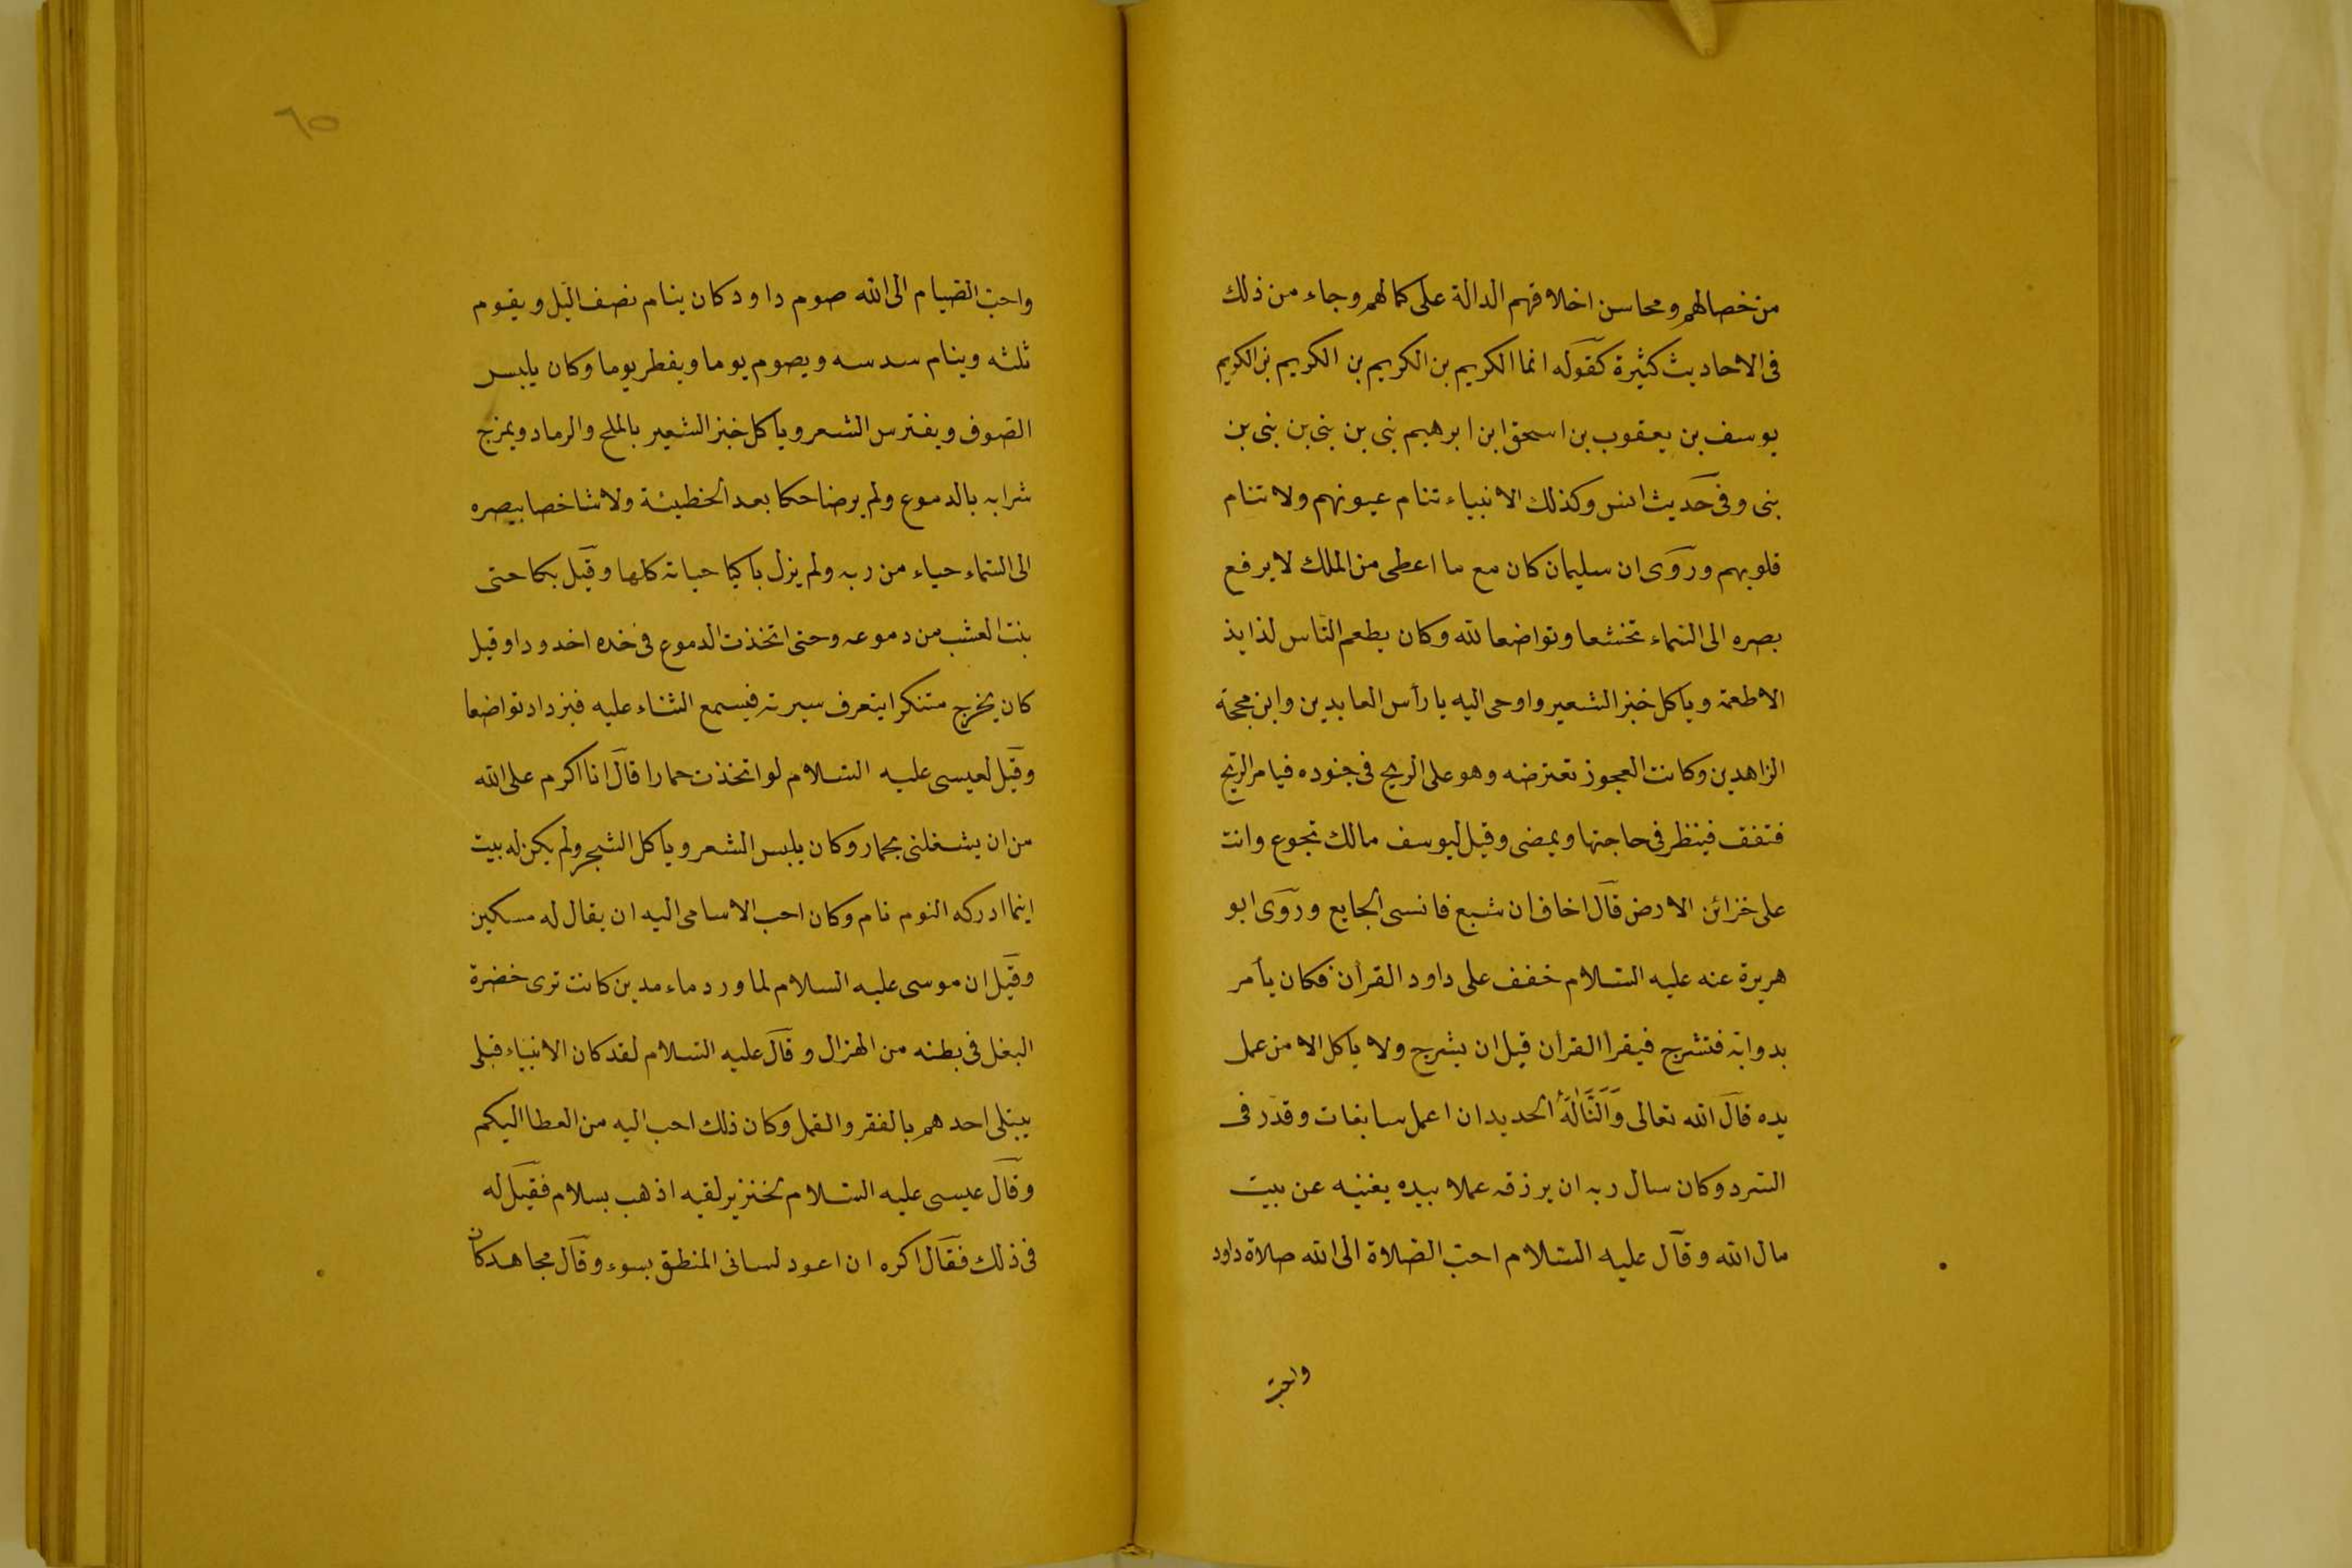 من خصالهم ومحاسن اخلاقهم الدالة على كمالهم وجاء من ذلك
فى الاحاديث كثيرة كقوله انما الكريم بن الكريم بن الكريم بن الكريم
يوسف بن يعقوب بن اسحق ابن ابرهيم نبى بن نبى بن نبى بن
نبى وفى حديث انس وكذلك الانبياء تنام عيونهم ولا تنام
قلوبهم وروى ان سليمان كان مع ما اعطى من الملك لا يرفع
بصره الى السماء تخشعا وتواضعا لله وكان يطعم الناس لذايذ
الاطعمة وياكل خبز الشعير واوحى اليه يا رأس العابدين وابن محجة
الزاهدين وكانت العجوز تعترضه وهو على الريح فى جنوده فيامر الريح
فتفق فينظر فى حاجتها ويمضى وقيل ليوسف مالك تجوع وانت
على خزائن الارض قال اخاف ان شبع فانسى الجايع وروى ابو
هريرة عنه عليه السلام خفف على داود القرأن فكان يأمر
بدوابه فتشرج فيقرأ القرأن قبل ان يشرج ولا ياكل الا من عمل
يده قال الله تعالى وَاَلَنَّا لَهُ الحديد ان اعمل سابغات وقدر فى
السرد وكان سال ربه ان يرزقه عملا بيده يغنيه عن بيت
مال الله وقال عليه السلام احب الصلاة الى الله صلاة داود
واحب
٦٥
واحب الصيام الى الله صوم داود كان ينام نصف الليل ويقوم
ثلثه وينام سدسه ويصوم يوما ويفطر يوما وكان يلبس
الصوف ويفترس الشعر وياكل خبز الشعير بالملح والرماد ويمزج
شرابه بالدموع ولم يرضاحكا بعد الخطيئة ولا شاخصا ببصره
الى السماء حياء من ربه ولم يزل باكيا حياته كلها وقيل بكا حتى
بنت العشب من دموعه وحتى اتخذت الدموع فى خده اخدودا وقيل
كان يخرج متنكرا يتعرف سيرته فيسمع الثناء عليه فيزداد تواضعا
وقيل لعيسى عليه السلام لو اتخذت حمارا قال انا اكرم على الله
من ان يشغلنى بحمار وكان يلبس الشعر وياكل الشجر ولم يكن له بيت
اينما ادركه النوم نام وكان احب الاسامى اليه ان يقال له مسكين
وقيل ان موسى عليه السلام لما ورد ماء مدين كانت ترى خضرة
البغل فى بطنه من الهزال وقال عليه السلام لقد كان الانبياء قبلى
يبتلى احدهم بالفقر والقمل وكان ذلك احب اليه من العطا اليكم
وقال عيسى عليه السلام لخنزير لقيه اذهب بسلام فقيل له
فى ذلك فقال اكره ان اعود لسانى المنطق بسوء وقال مجاهد كان